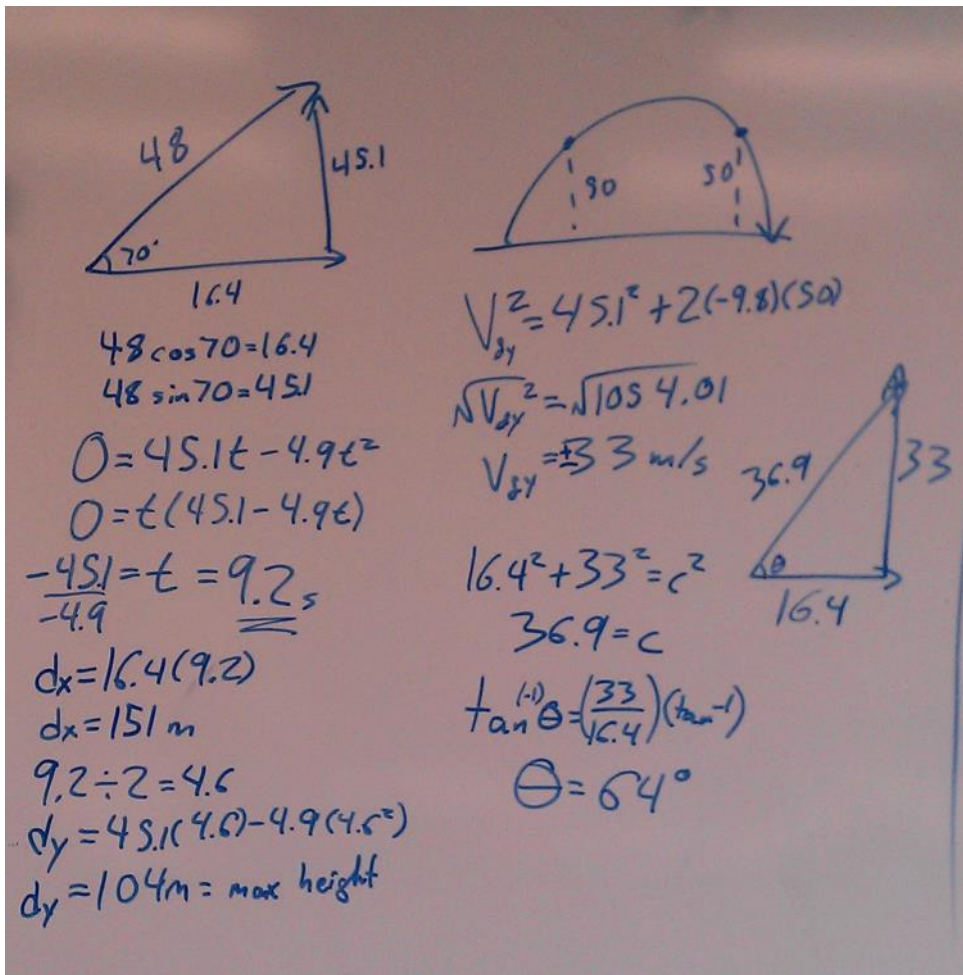 48
45.1
70°
16.4
48 cos70=16.4
48 sin70=45.1
0=45.1t-4.9t²
0=t(45.1-4.9t)
-45.1/-4.9=t=9.2s
dx=16.4(9.2)
dx=151m
9.2÷2=4.6
dy=45.1(4.6)-4.9(4.6²)
dy=104m= max height
50 50
V₈y²=45.1²+2(-9.8)(50)
√V₈y²=√1054.01
V₈y=±33 m/s
36.9
33
θ
16.4
16.4²+33²=c²
36.9=c
tan⁽⁻¹⁾θ=(33/16.4)(tan⁻¹)
θ=64°